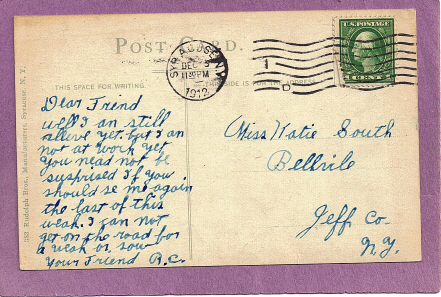 POST CARD.
SYRACUSE, N.Y.
DEC
11 30 PM
1912
1
D
U.S. POSTAGE
1 CENT 1
THIS SPACE FOR WRITING.
THIS SIDE IS FOR THE ADDRESS
353 Rudolph Bros., Manufacturers, Syracuse, N. Y.
Dear Frend
well I an still
alieve yet. but I an
not at work yet
you nead not be
susprised if you
should se me again
the last of this
weak. I can not
get on the road for
a weak or sow
your Friend R.C.
Miss Katie South
Bellvile
Jeff Co.
N.Y.